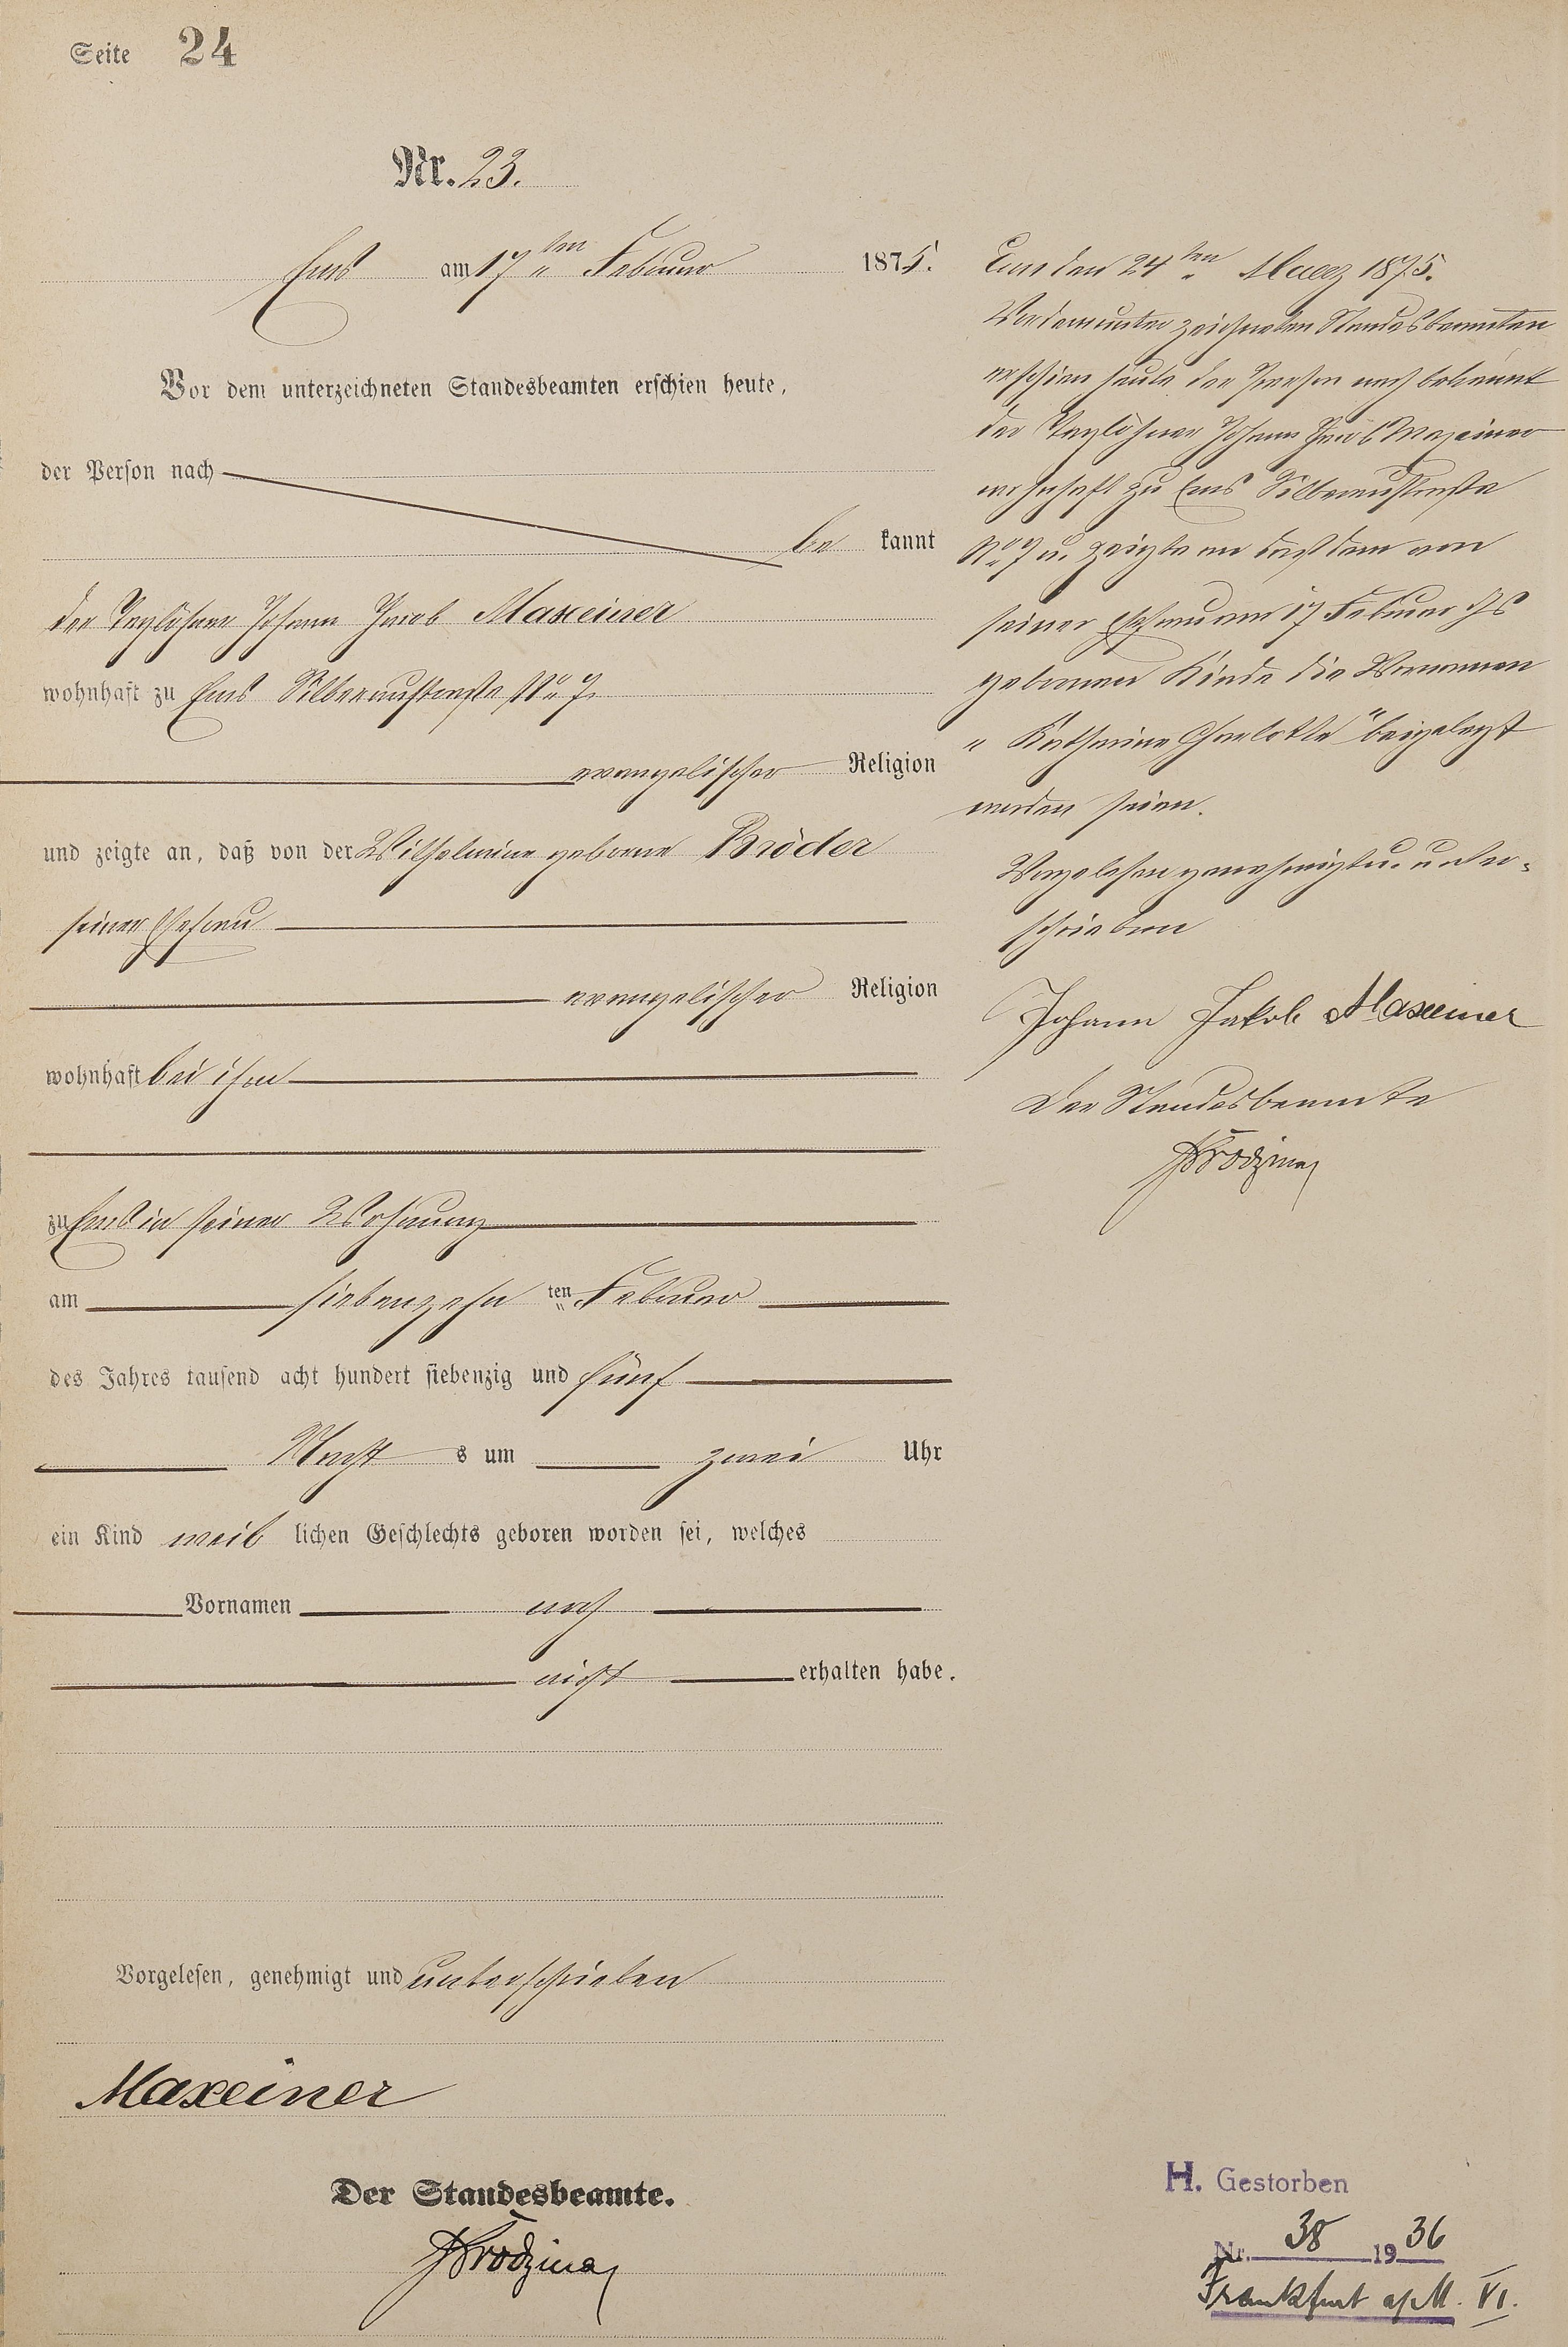 Seite 24
Nr. 23.
Ems am 17ten Februar 1875.
Vor dem unterzeichneten Standesbeamten erschien heute,
der Person nach
be kannt
der Taglöhner Johann Jacob Maxeiner
wohnhaft zu Ems Silberaustraße No 7.
evangelischer Religion
und zeigte an, daß von der Wilhelmine geborene Bröder
seiner Ehefrau
evangelischer Religion
wohnhaft bei ihm
zu Ems in seiner Wohnung
am siebenzehn ten Februar
des Jahres tausend acht hundert siebenzig und fünf
Nacht s um zwei Uhr
ein Kind weib lichen Geschlechts geboren worden sei, welches
Vornamen noch
nicht erhalten habe.
Vorgelesen, genehmigt und unterschrieben
Maxeiner
Der Standesbeamte.
Ems den 24ten Maerz 1875.
Vor dem unterzeichneten Standesbeamten
erschien heute der Person nach bekannt
der Taglöhner Johann Jacob Maxeiner
wohnhaft zu Ems Silberaustraße
No 7 u. zeigte an daß dem von
seiner Ehefrau am 17 Februar ds Js
geborenen Kinde die Vornamen
"Katharine Charlotte" beigelegt
worden seien.
Vorgelesen genehmigt u. unter-
schrieben
Johann Jakob Maxeiner
Der Standesbeamte
H. Gestorben
Nr. 38 1936
Frankfurt a/M. VI.